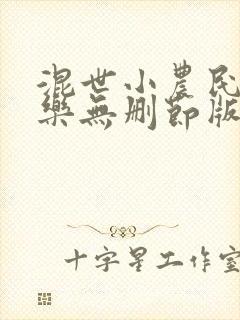 混世小農民
樂無刪節版
十字星工作室